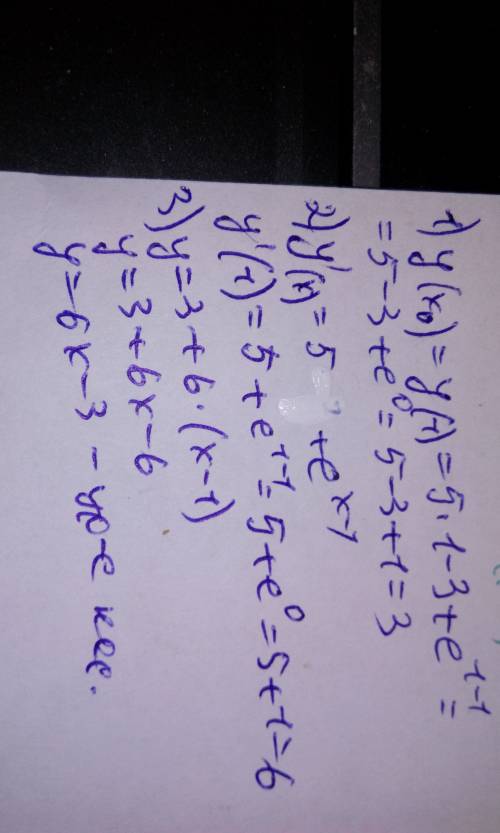 1) y(x₀) = y(1) = 5·1-3+e¹⁻¹ =
= 5-3+e⁰ = 5-3+1=3
2) y'(x) = 5 +eˣ⁻¹
y'(1) = 5+e¹⁻¹ = 5+e⁰ = 5+1=6
3) y=3+6·(x-1)
y=3+6x-6
y=6x-3 - ур-е кас.